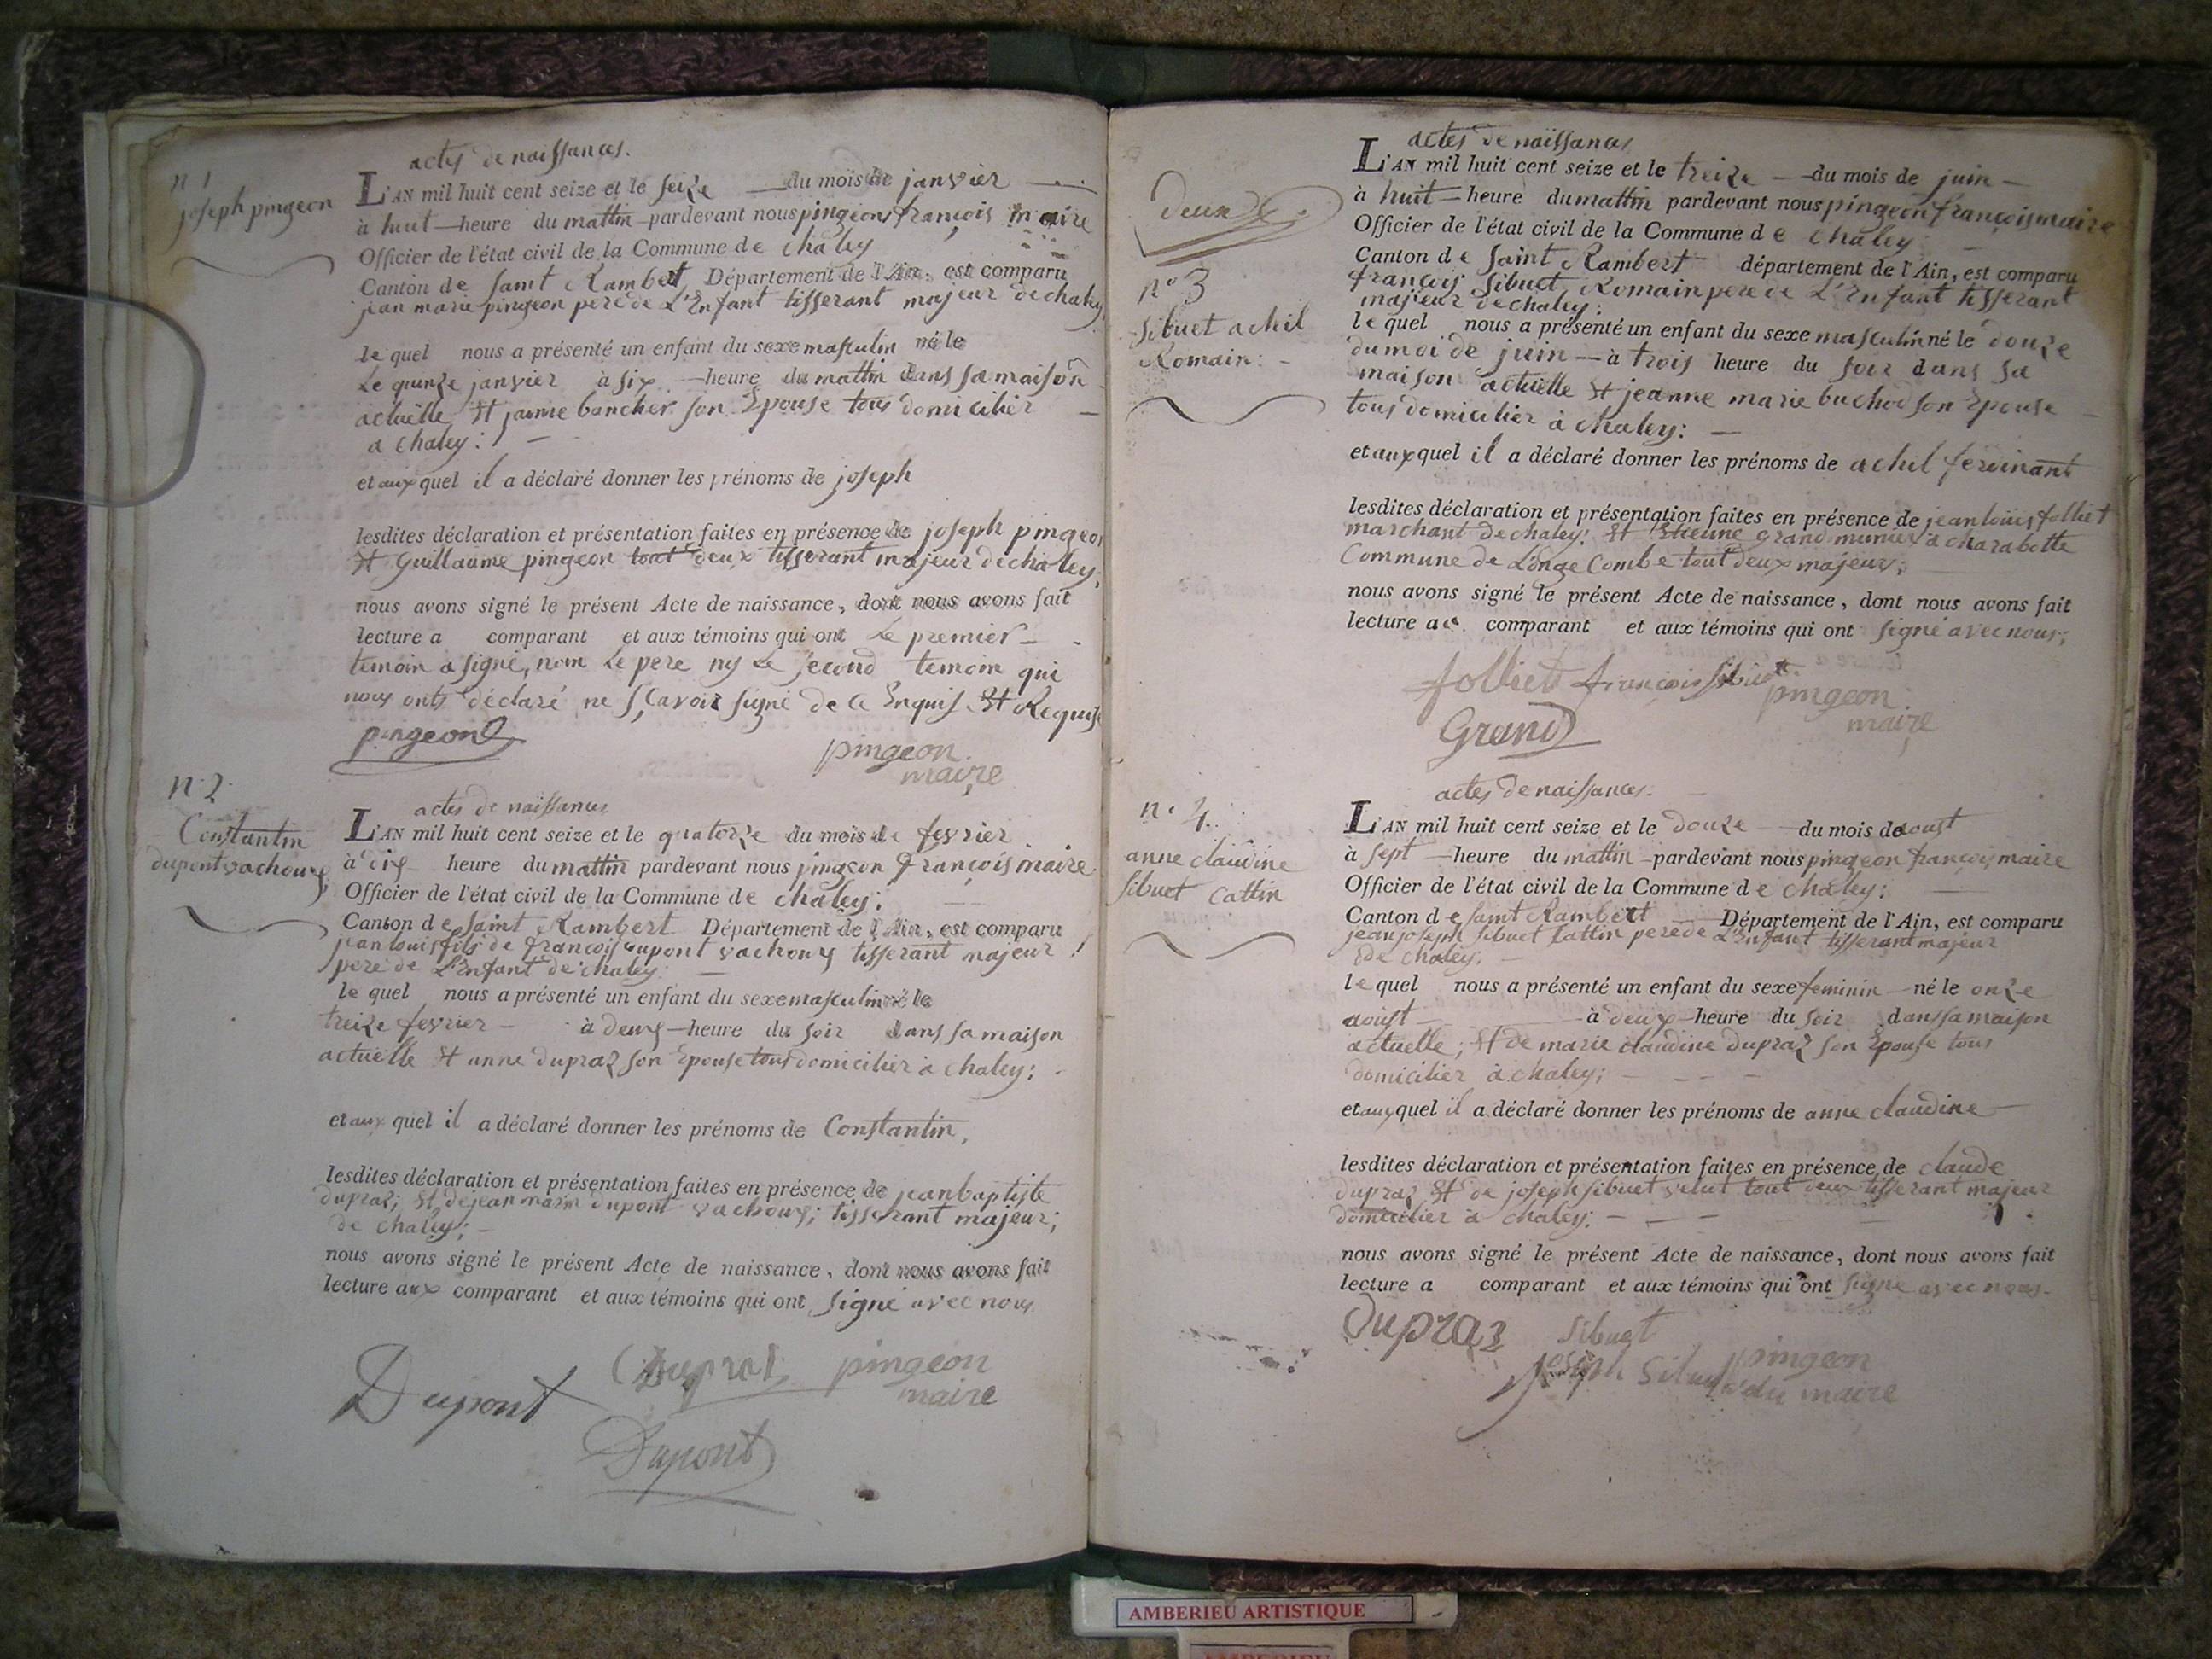 actes de naissances.
n° 1
joseph pingeon
L'AN mil huit cent seize et le seize du mois de janvier
à huit heure du mattin pardevant nous pingeon françois maire
Officier de l'état civil de la Commune de chaley
Canton de saint Rambert Département de l'Ain, est comparu
jean marie pingeon pere de L'Enfant tisserant majeur de chaley
le quel nous a présenté un enfant du sexe masculin né le
Le quinze janvier à six heure du mattin dans sa maison
actuëlle Et son Epouse tous domicilier
a chaley:
et aux quel il a déclaré donner les prénoms de joseph
lesdites déclaration et présentation faites en présence de joseph pingeon
Et Guillaume pingeon tout deux tisserant majeur de chaley;
nous avons signé le présent Acte de naissance, dont nous avons fait
lecture a comparant et aux témoins qui ont Le premier
temoin a signé, non Le pere ny Le second temoin qui
nous onts déclaré ne sçavoir signé de ce Enquis Et Requis
pingeon
pingeon
maire
n° 2
Constantin
dupont vachoux
actes de naissances
L'AN mil huit cent seize et le quatorze du mois de fevrier
à dix heure du mattin pardevant nous pingeon françois maire
Officier de l'état civil de la Commune de chaley;
Canton de saint Rambert Département de l'Ain, est comparu
jean louis fils de françois dupont vachoux tisserant majeur
pere de L'Enfant de chaley:
le quel nous a présenté un enfant du sexe masculin né le
treize fevrier à deux heure du soir dans sa maison
actuëlle Et anne dupraz son Epouse tous domicilier à chaley;
et aux quel il a déclaré donner les prénoms de Constantin,
lesdites déclaration et présentation faites en présence de jean baptiste
dupraz; Et de jean marie dupont vachoux; tisserant majeur;
de chaley;
nous avons signé le présent Acte de naissance, dont nous avons fait
lecture aux comparant et aux témoins qui ont signé avec nous
Dupraz pingeon
maire
Dupont
Dupont
deux
n° 3
sibuet achil
Romain:
actes de naissances
L'AN mil huit cent seize et le treize du mois de juin
à huit heure du mattin pardevant nous pingeon françois maire
Officier de l'état civil de la Commune de chaley
Canton de saint Rambert département de l'Ain, est comparu
françois sibuet Romain pere de L'Enfant tisserant
majeur de chaley;
le quel nous a présenté un enfant du sexe masculin né le douze
du moi de juin à trois heure du soir dans sa
maison actuëlle Et jeanne marie buchod son Epouse
tous domicilier à chaley:
et aux quel il a déclaré donner les prénoms de achil ferdinant
lesdites déclaration et présentation faites en présence de jean louis folliet
marchant de chaley; Et Etienne grand munier à charabotte
Commune de Longe Combe tout deux majeur;
nous avons signé le présent Acte de naissance, dont nous avons fait
lecture au comparant et aux témoins qui ont signé avec nous;
folliet françois sibuet
pingeon
maire
Grand
n° 4
anne claudine
sibuet cattin
actes de naissances.
L'AN mil huit cent seize et le douze du mois de aoust
à sept heure du mattin pardevant nous pingeon françois maire
Officier de l'état civil de la Commune de chaley:
Canton de saint Rambert Département de l'Ain, est comparu
jean joseph sibuet cattin pere de L'Enfant tisserant majeur
de chaley;
le quel nous a présenté un enfant du sexe feminin né le onze
aoust à deux heure du soir dans sa maison
actuelle; Et de marie claudine dupraz son Epouse tous
domicilier à chaley;
et aux quel il a déclaré donner les prénoms de anne claudine
lesdites déclaration et présentation faites en présence de claude
dupraz Et de joseph sibuet velut tout deux tisserant majeur
domicilier à chaley:
nous avons signé le présent Acte de naissance, dont nous avons fait
lecture a comparant et aux témoins qui ont signé avec nous.
Dupraz sibuet
joseph sibuet pingeon
maire
AMBERIEU ARTISTIQUE
AMBERIEU